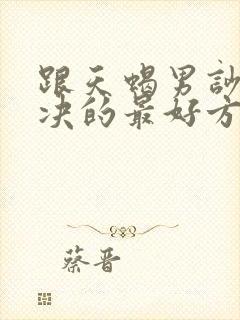 跟天蝎男訟
决的最好方
蔡晋